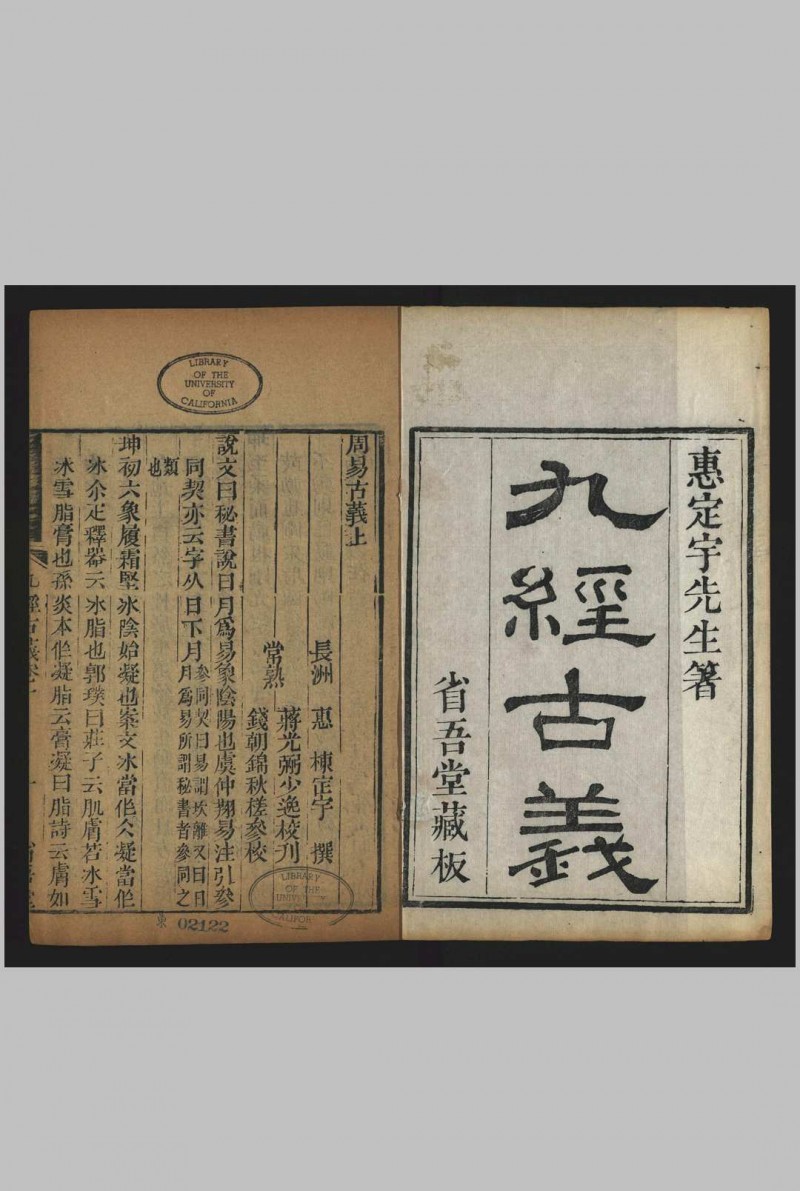 惠定宇先生箸
九經古義
省吾堂藏板
LIBRARY
OF THE
UNIVERSITY
OF
CALIFORNIA
周易古義上
長洲 惠 棟定宇 撰
常熟
蔣光弼少逸校刋
錢朝錦秋槎參校
說文曰秘書說日月爲易象陰陽也虞仲翔易注引參
同契亦云字从日下月
參同契曰易謂坎離又曰日
月爲易所謂秘書者參同之
類
也
坤初六象履霜堅冰陰始凝也案文冰當作仌凝當作
冰尒疋釋器云冰脂也郭璞曰莊子云肌膚若冰雪
冰雪脂膏也孫炎本作凝脂云膏凝曰脂詩云膚如
九經古義卷一
一
省吾堂
LIBRARY
OF THE
UNIVERSITY
OF
CALIFOR
東 02122